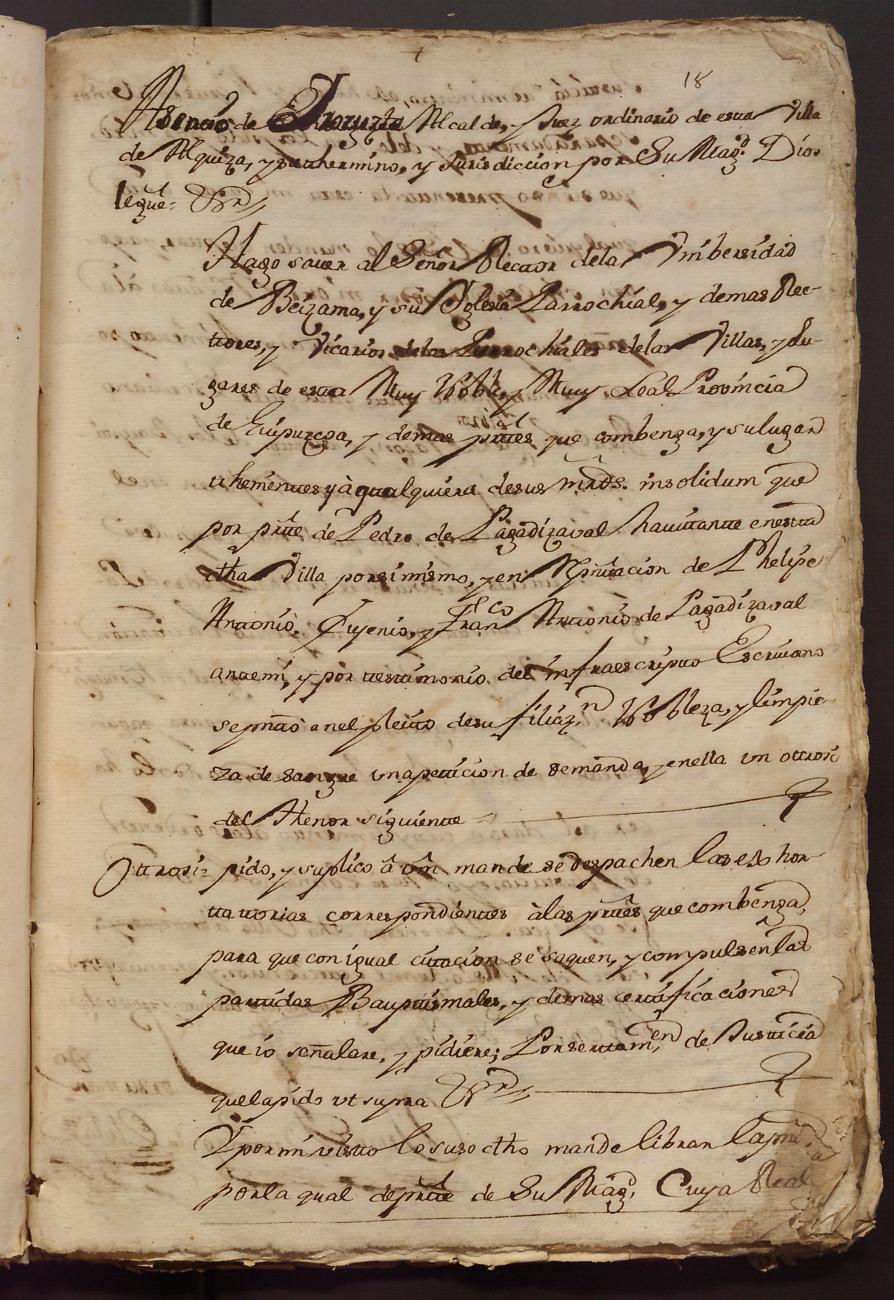 18
Asencio de Alcalde, y Juez ordinario de esta Villa
de Alquiza, y su thermino, y Jurisdiccion por Su Mag.d Dios
le gue: &ra
Hago saver al Señor Rector dela Vnibersidad
de Beizama, y su Iglesia Parrochial, y demas Rec-
ttores, y Vicarios delas Parrochiales delas Villas, y Lu-
gares de esta Muy Noble, y Muy Leal Provincia
de Guipuzcoa, y demas prttes que combenga, y su lugar
thenienttes y à qualquiera de sus mrds. insolidum que
por prtte de Pedro de Lagadizaval havitantte en estta
dha Villa porsimismo, y en Rpnttacion de Phelipe
Anttonio, Eujenio, y Franco Anttonio de Lagadizaval
antemi, y por testtimonio del infraescriptto Escrivano
se pnttò en el pleitto de su filiaz.n Nobleza, y limpie-
za de sangre vna petticion de demanda, y en ella vn ottrosi
del thenor siguientte
Ottrosi: pido, y suplico â vm mande se despachen las exhor-
tattorias correspondienttes à las prttes que combenga,
para que con igual cittacion se saquen, y compulsen las
parttidas Bauptismales, y demas certtificaciones
que io señalare, y pidiere; Por ser ttam.en de Justticia
que la pido vt supra &ra
Y por mi vistto lo suso dho mande librar la pntte
por la qual de prtte de Su Mag.d Cuya Real